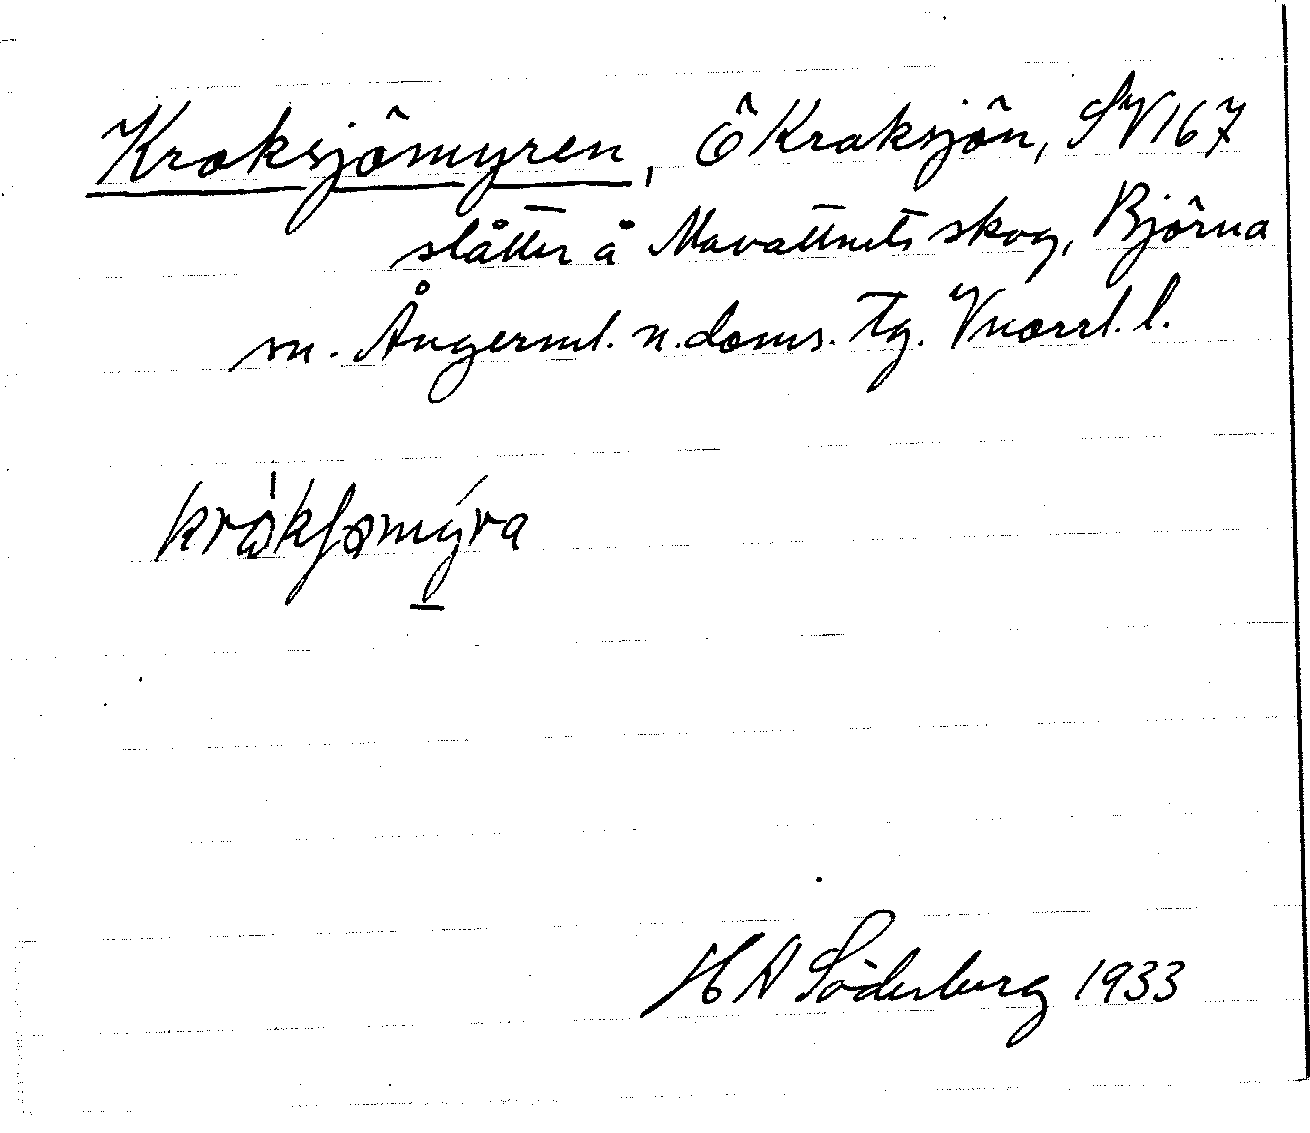 Kroksjömyren, Ö Kroksjön, SV 167
slåtter å Mavattnets skog, Björna
sn. Ångerml. n. doms. Tg. Vnorrl. l.
kròkʃømýra
H A Söderberg 1933